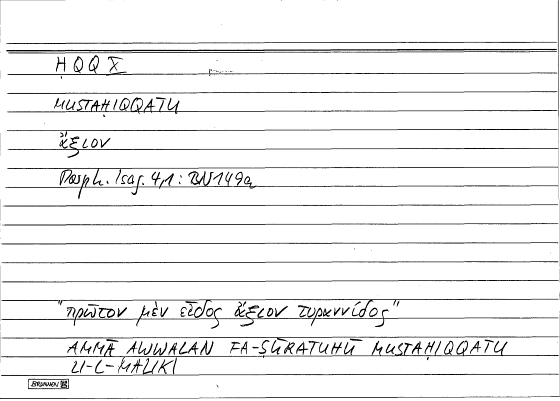 ḤQQ X
MUSTAḤIQQATU
ἄξιον
Porph. Isag. 4,1 : BN149a
"πρῶτον μὲν εἶδος ἄξιον τυραννίδος"
AMMĀ AWWALAN FA-ṢŪRATUHŪ MUSTAḤIQQATU
LI-L-MALIKI
BRUNNEN